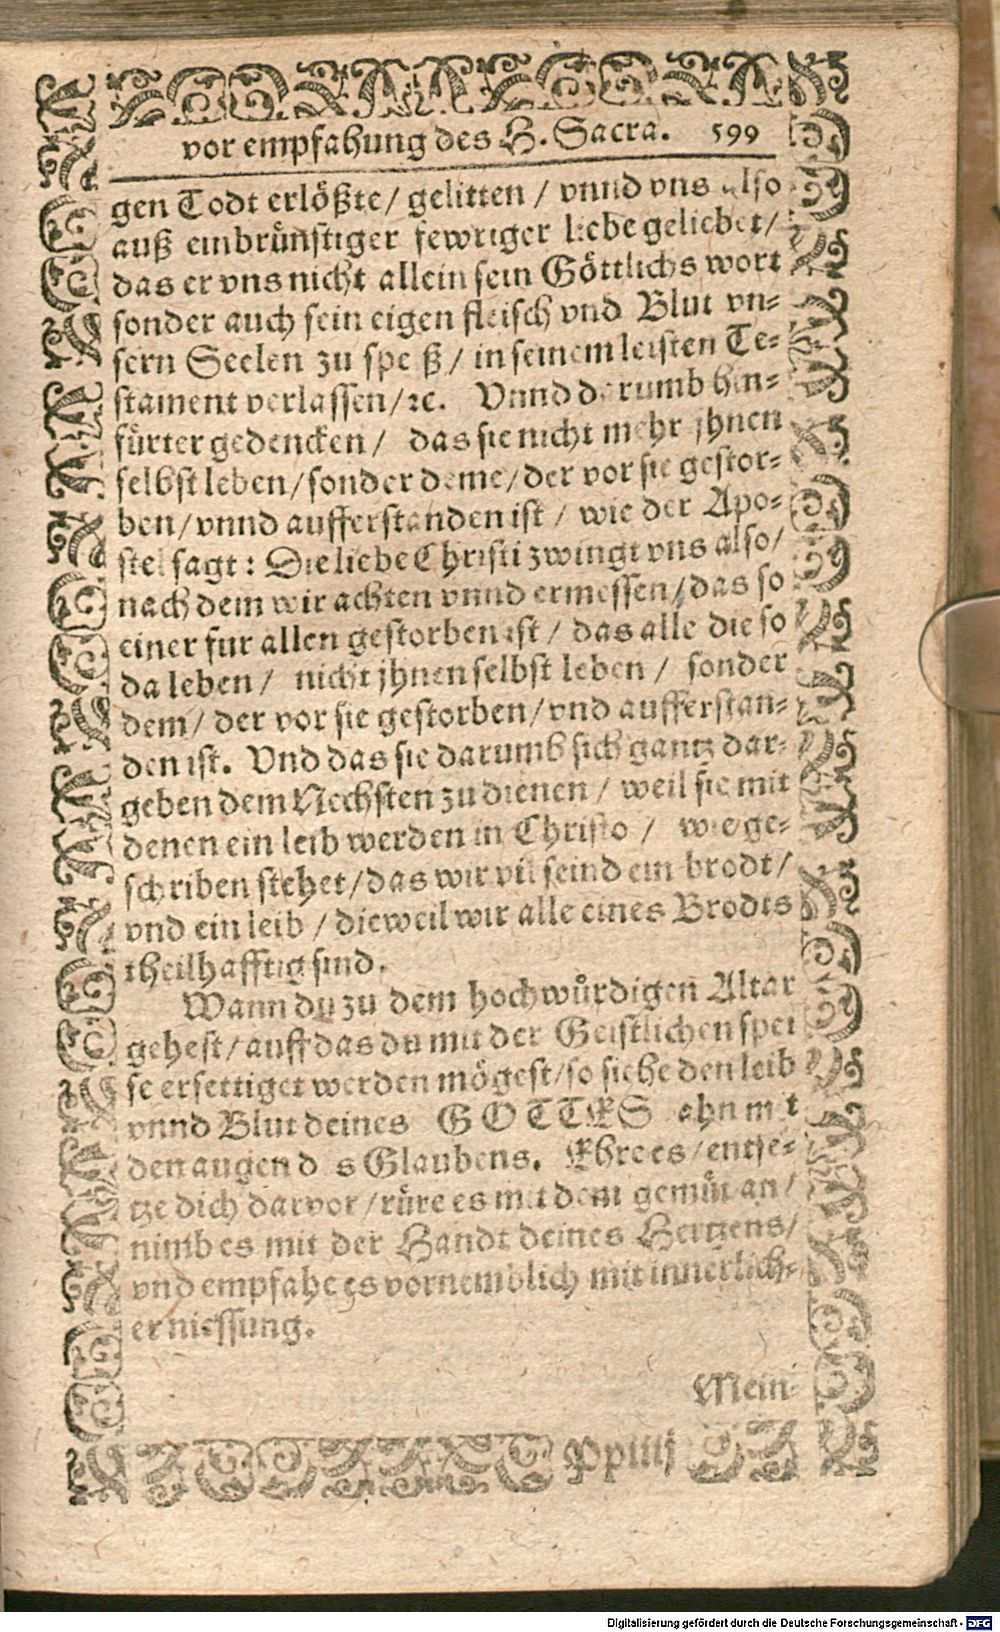 vor empfahung des H. Sacra. 599
gen Todt erlößte/ gelitten / vnnd vns also
auß einbrünstiger fewriger liebe geliebet/
das er vns nicht allein sein Göttlichs wort
sonder auch sein eigen fleisch vnd Blut vn-
sern Seelen zu spe ß/ in seinem letsten Te-
stament verlassen/ ꝛc. Vnnd darumb hin-
fürter gedencken/ das sie nicht mehr jhnen
selbst leben/ sonder deme/ der vor sie gestor-
ben/ vnnd aufferstanden ist / wie der Apo-
stel sagt: Die liebe Christi zwingt vns also/
nach dem wir achten vnnd ermessen/ das so
einer fur allen gestorben ist / das alle die so
da leben/ nicht jhnen selbst leben / sonder
dem/ der vor sie gestorben/ vnd aufferstan-
den ist. Vnd das sie darumb sich gantz dar-
geben dem Nechsten zu dienen / weil sie mit
denen ein leib werden in Christo / wie ge-
schriben stehet/ das wir vil seind ein brodt/
vnd ein leib / dieweil wir alle eines Brodts
theilhafftig sind.
Wann du zu dem hochwürdigen Altar
gehest/ auff das du mit der Geistlichen spei
se ersettiget werden mögest/ so siehe den leib
vnnd Blut deines GOTTES ahn mit
den augen d s Glaubens. Ehre es/ entse-
tze dich darvor / rüre es mit dem gemüt an/
nimb es mit der Handt deines Hertzens/
vnd empfahe es vornemblich mit innerlich-
er niessung.
Mein-
Pp iiij
Digitalisierung gefördert durch die Deutsche Forschungsgemeinschaft - DFG